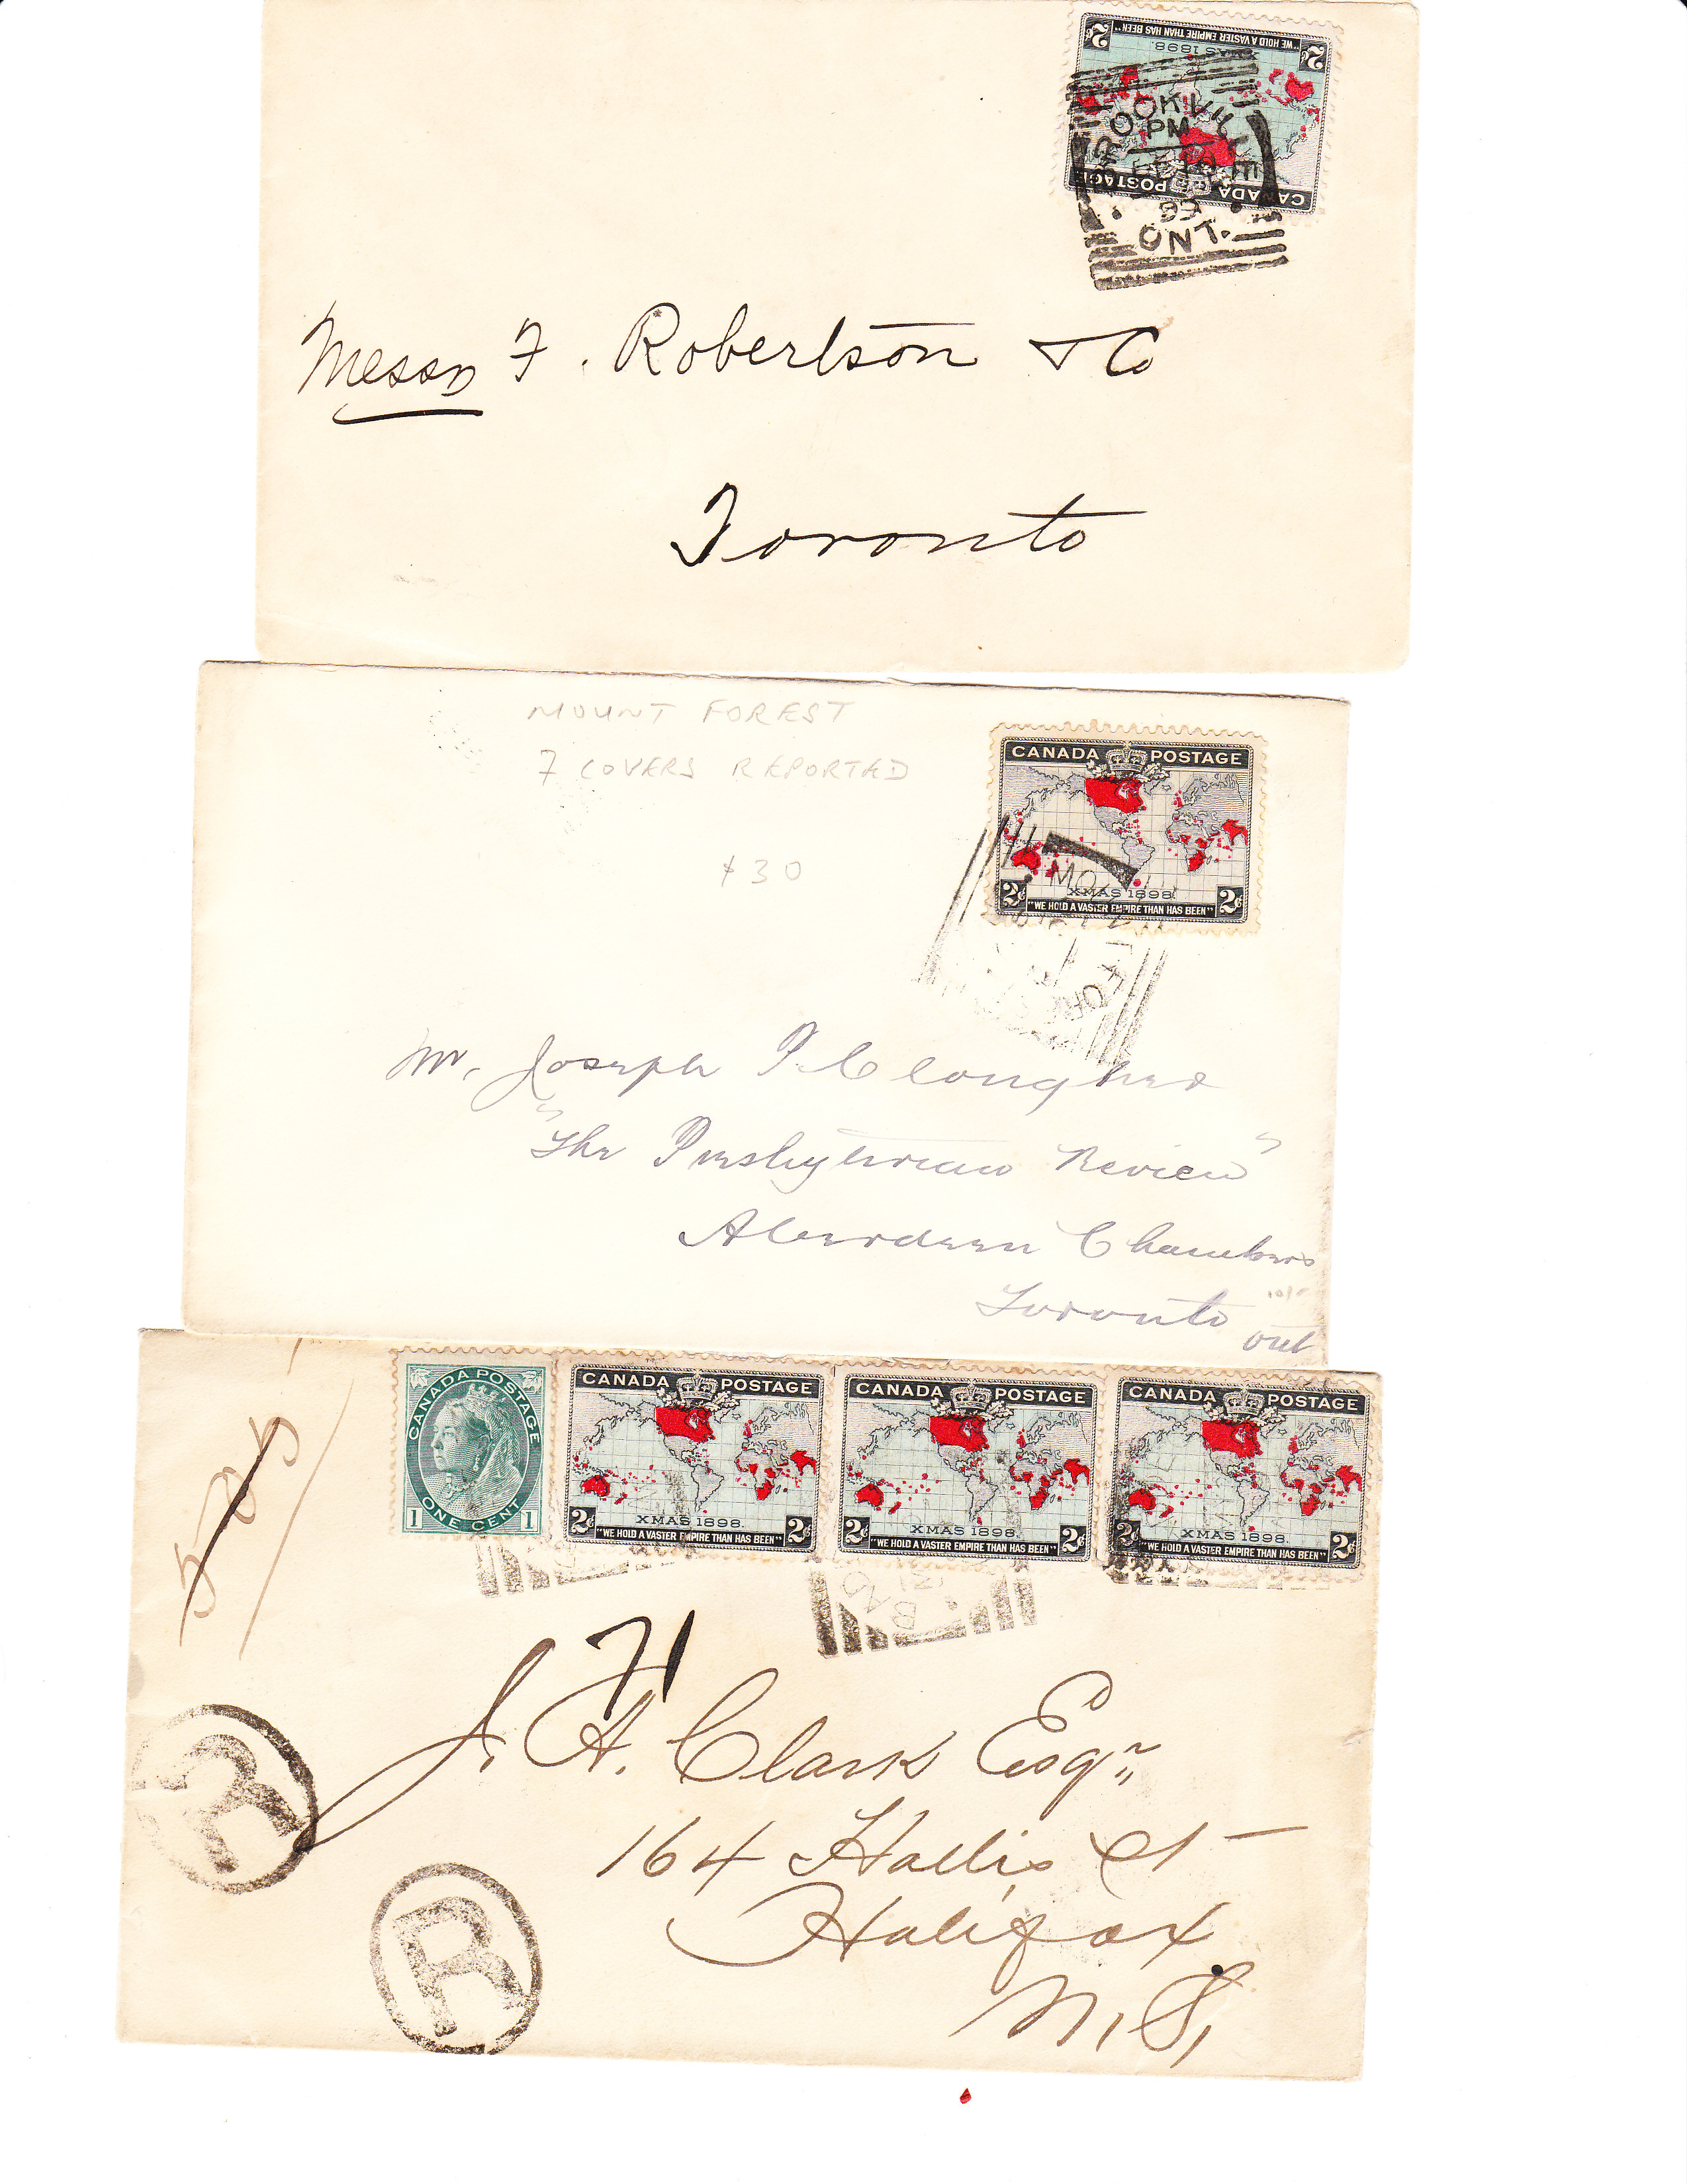 2¢ "WE HOLD A VASTER EMPIRE THAN HAS BEEN" 2¢
XMAS 1898.
CANADA POSTAGE
BROOKVILLE
PM
99
ONT.
Messrs F. Robertson & Co
Toronto
MOUNT FOREST
7 COVERS REPORTED
$30
CANADA POSTAGE
XMAS 1898
2¢ "WE HOLD A VASTER EMPIRE THAN HAS BEEN" 2¢
Mr. Joseph P. Clougher
"The Presbyterian Review"
Aberdeen Chambers
Toronto
Ont
CANADA POSTAGE
1 ONE CENT 1
CANADA POSTAGE
XMAS 1898.
2¢ "WE HOLD A VASTER EMPIRE THAN HAS BEEN" 2¢
CANADA POSTAGE
XMAS 1898.
2¢ "WE HOLD A VASTER EMPIRE THAN HAS BEEN" 2¢
CANADA POSTAGE
XMAS 1898.
2¢ "WE HOLD A VASTER EMPIRE THAN HAS BEEN" 2¢
71
J. A. Clark Esqr
164 Hollis St
Halifax
N.S.
R
R